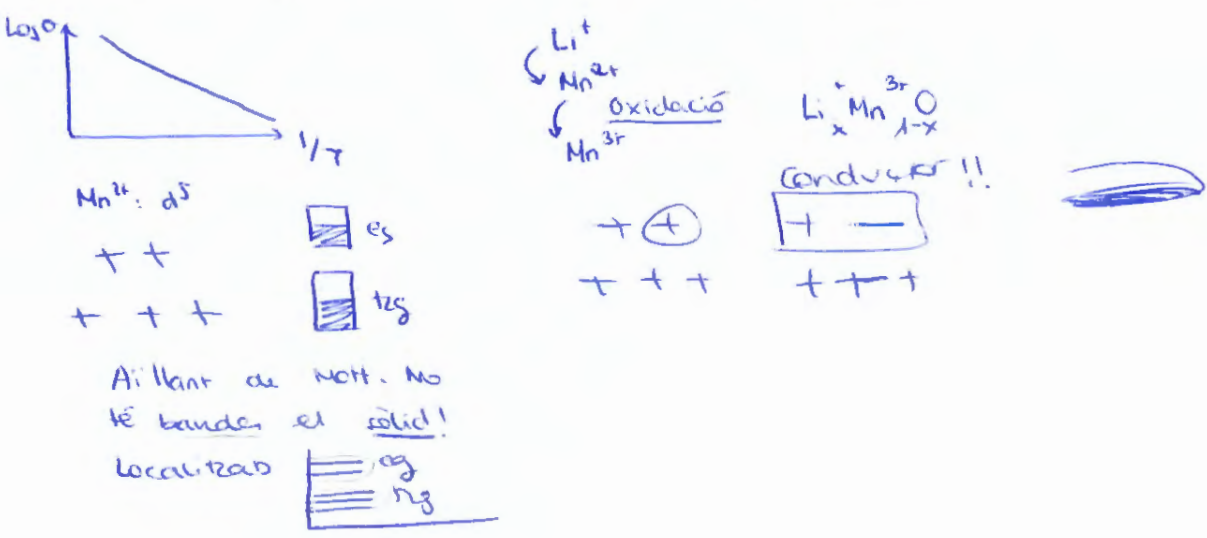 Log σ
1/T
Mn²⁺: d⁵
eg
t2g
Aïllant de Mott. No
té bandes el sòlid!
Localitzats
eg
t2g
Li⁺
Mn²⁺
Oxidació
Mn³⁺
Liₓ⁺Mn³⁺₁₋ₓO
Conductor!!